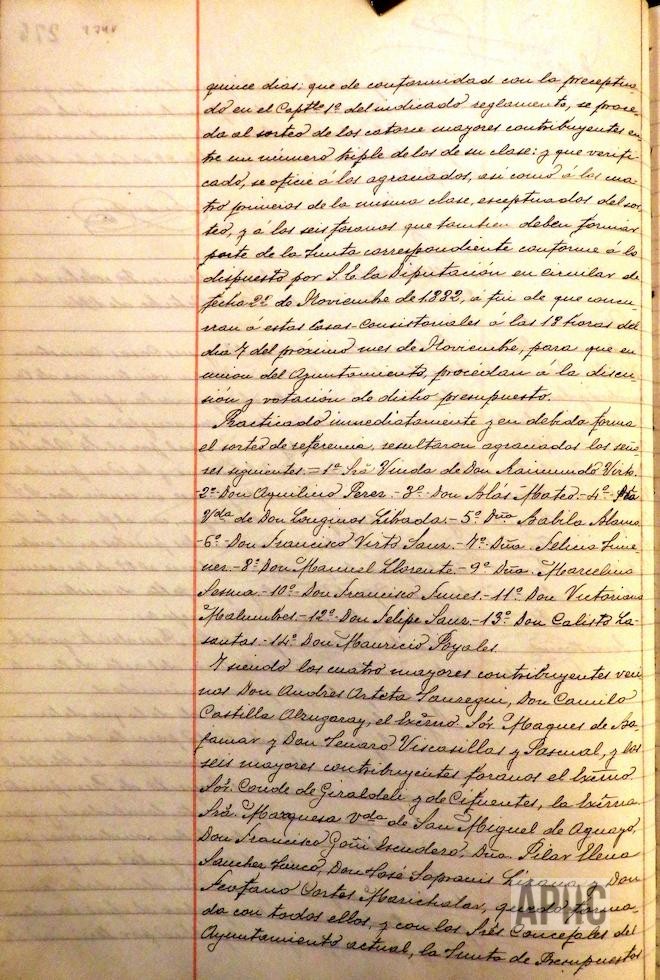 quince dias; que de conformidad con lo preceptua-
do en el Captlo 1º del indicado reglamento, se proce-
da al sorteo de los catorce mayores contribuyentes en
tre un número triple de los de su clase; y que verifi-
cado, se oficie á los agraciados, asi como á los cua-
tro primeros de la misma clase, esceptuados del sor-
teo, y á los seis foranos que tambien deben formar
parte de la Junta correspondiente conforme á lo
dispuesto por S.E. la Diputación en circular de
fecha 22 de Noviembre de 1882, á fin de que concu-
rran á estas Casas-Consistoriales á las 18 horas del
dia 7 del próximo mes de Noviembre, para que en
union del Ayuntamiento, procedan á la discu-
sión y votación de dicho presupuesto.
Practicado inmediatamente y en debida forma
el sorteo de referencia, resultaron agraciados los seño
res siguientes.=1º Sra Viuda de Don Raimundo Virto.
-2º Don Aquilino Perez.-3º Don Blás Mateo.-4º
Vda de Don Longinos Libada.-5º Dña Babila Alamo
-6º Don Francisco Virto Sanz.-7º Dña. Felicia Jime
nez.-8º Don Manuel Llorente.-9º Dña. Marcelina
Sesma.-10º Don Francisco Funes.-11º Don Victoriano
Malumbres.-12º Don Felipe Sanz.-13º Don Calisto La-
santas.-14º Don Mauricio Royales.
Y siendo los cuatro mayores contribuyentes veci
nos Don Andres Arteta Jauregui, Don Camilo
Castilla Alzugaray, el Excmo. Sor. Maques de
y Don Genaro Viscasillas y Pascual, y los
seis mayores contribuyentes foranos el Excmo.
Sor. Conde de Giraldeli y de Cifuentes, la Excma
Sra. Marquesa Vda de San Miguel de Aguayo,
Don Francisco Goñi Escudero, Dña. Pilar Elena
Sanchez Don José Sopranis y Don
Teofano Cortes Marichalar, quedó forma-
da con todos ellos, y con los Sres Concejales del
Ayuntamiento actual, la Junta de Presupuestos
APHC